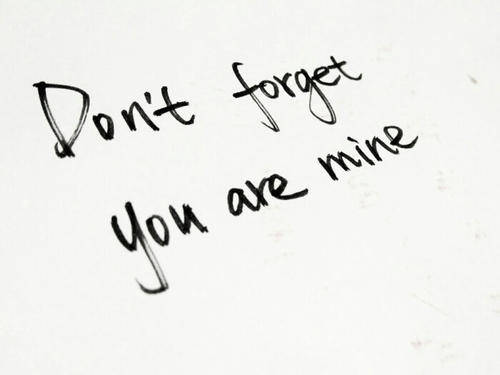 Don't forget
you are mine